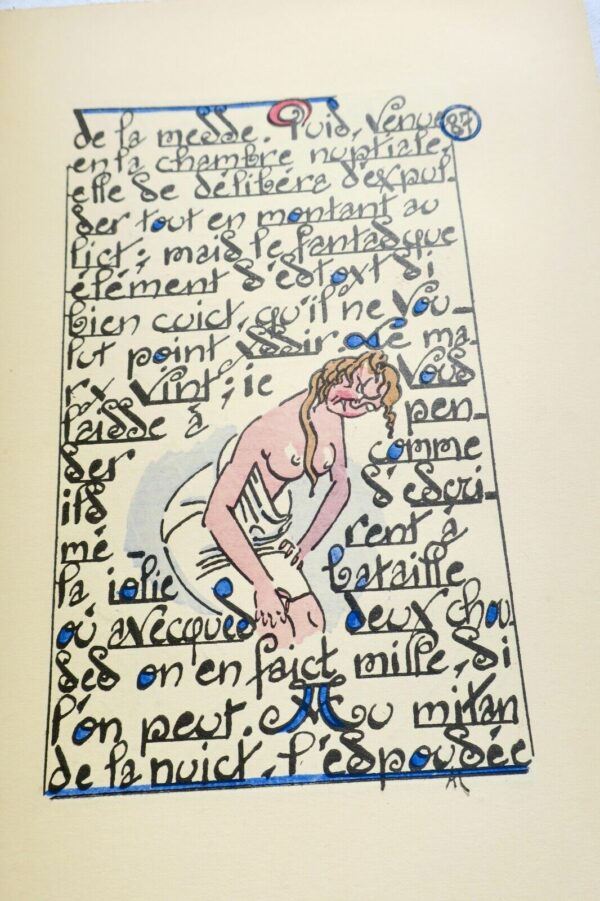 de la messe. Puis, venue 87
en la chambre nuptiale,
elle se délibéra d'expul-
ser tout en montant au
lict; mais le fantasque
élément s'estoyt si
bien cuict, qu'il ne vou-
lut point yssir. Le ma-
ry vint; ie vous
laisse à pen-
ser comme
ils s'escri-
mè- rent à
la iolie bataille
où avecques deux cho-
ses on en faict mille, si
l'on peut. Au mitan
de la nuict, l'espousée